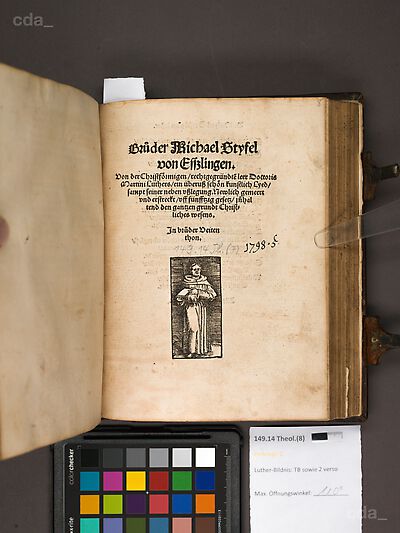 cda_
Brůder Michael Styfel
von Esszlingen.
Von der Christförmigen / rechtgegründtē leer Doctoris
Martini Luthers / ein überuß schön kunstlich Lyed /
sampt seiner neben vßlegung. Newlich gemeert
vnd erstreckt / vff fünfftzig gesetz / inhal
tend den gantzen grundt Christ
liches wesens.
In brůder Veiten
thon.
1798.
colorchecker
x-rite
149.14 Theol.(8)
Luther-Bildnis: TB sowie 2 verso
Max. Öffnungswinkel: 110°
cda_